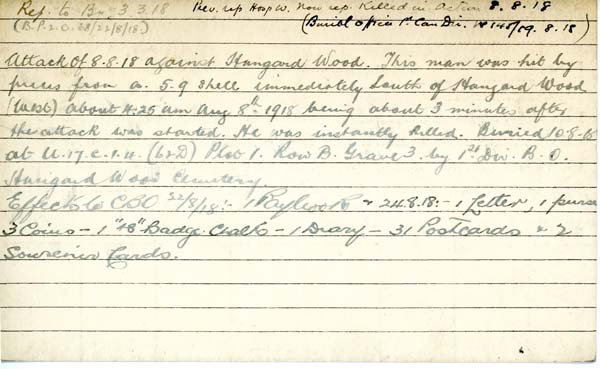 Rej. to Bn 3.3.18 Prev. rep Hosp w. now rep. Killed in action 8.8.18
(B.P.2.O. 33/22/8/18.) (Burial officer 1st Can Div. 14545/19.8.18)
Attack of 8.8.18 against Hangard Wood. This man was hit by
pieces from a 5.9 shell immediately South of Hangard Wood
(West) about 4.25 am Aug 8th 1918 being about 3 minutes after
the attack was started. He was instantly killed. Buried 10.8.18
at U.17.c.1.4. (62D) Plot 1. Row B. Grave 3. by 1st Div. B.O.
Hangard Wood Cemetery
Effects to CSO 22/8/18:- 1 Paybook 24.8.18:- 1 Letter, 1 purse
3 Coins - 1 "48" Badge - 1 Diary - 31 Postcards 2
Souvenir Cards.